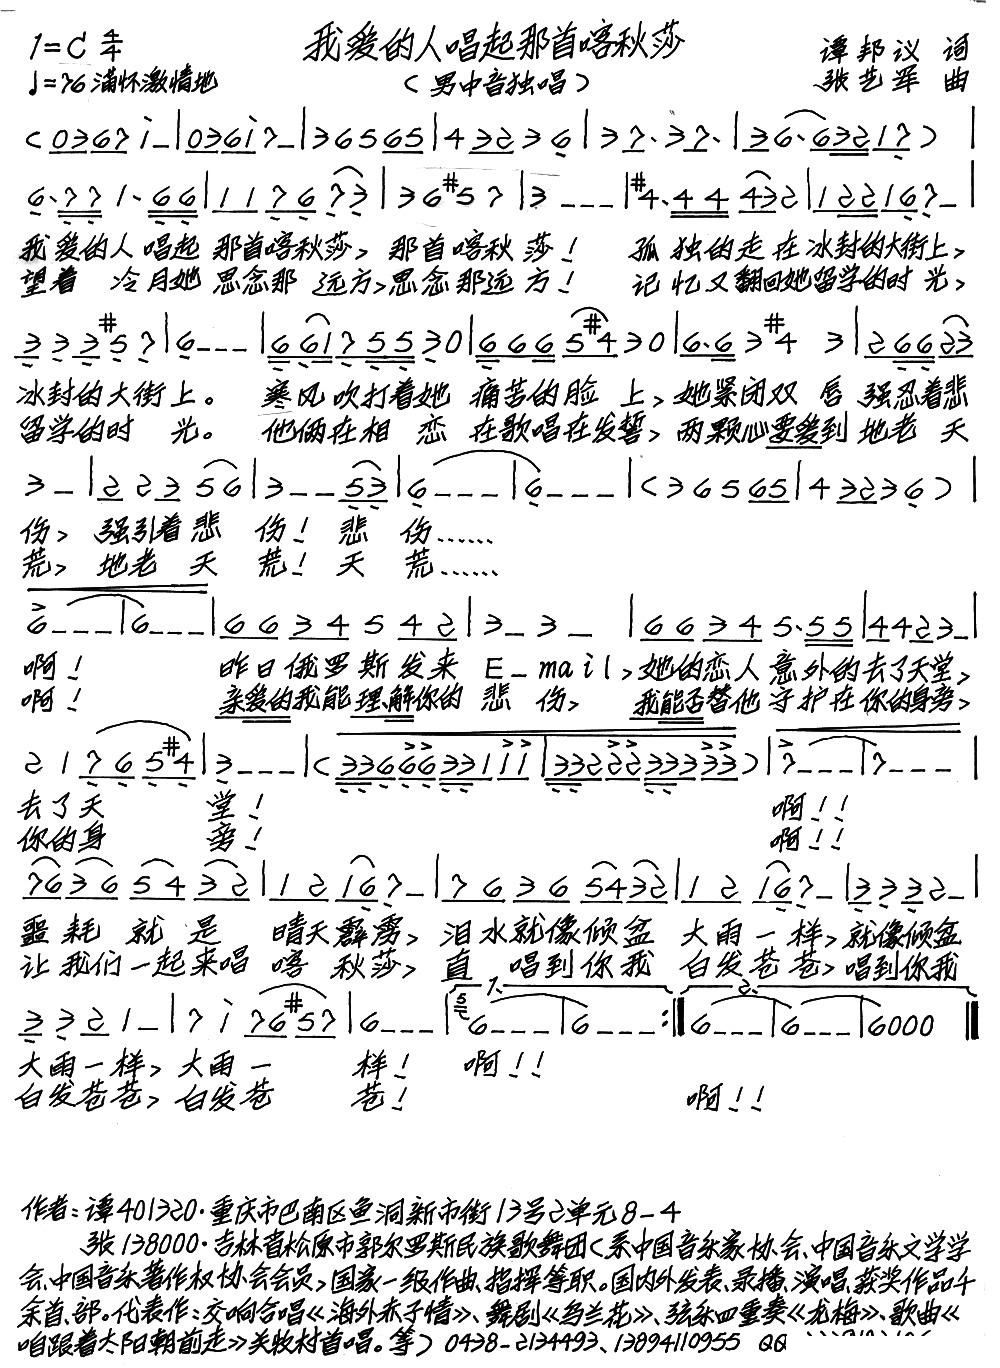 1=C 4/4 我爱的人唱起那首喀秋莎 谭邦议 词
♩=76 满怀激情地 (男中音独唱) 张艺军 曲
(0367i_|036i7_|36565|43236|37.37.|36.63217)|
6.771.66|117673|36#57|3___|#4.44432|122167_|
我爱的人唱起那首喀秋莎,那首喀秋莎! 孤独的走在冰封的大街上,
望着 冷月她思念那远方,思念那远方! 记忆又翻回她留学的时光,
333#57|6___|66175530|6665#430|6.63#4 3|26623|
冰封的大街上。 寒风吹打着她痛苦的脸上,她紧闭双唇强忍着悲
留学的时光。 他俩在相恋在歌唱在发誓,两颗心要爱到地老天
3_|22356|3__53|6___|6___|(36565|43236)|
伤,强引着悲伤!悲伤......
荒,地老天荒!天荒......
6___|6___|6634542|3_3_|66345.55|4423_|
啊! 昨日俄罗斯发来E_mail,她的恋人意外的去了天堂,
啊! 亲爱的我能理解你的悲伤, 我能否替他守护在你的身旁,
21765#4|3___|(3366633111|3322233333)|7___|7___|
去了天堂! 啊!!
你的身旁! 啊!!
76365432|12167_|76365432|12167_|3332_|
噩耗就是晴天霹雳,泪水就像倾盆大雨一样,就像倾盆
让我们一起来唱喀秋莎,直唱到你我白发苍苍,唱到你我
3321_|7i76#57|6___|6___|6___:|6___|6___|6000‖
大雨一样,大雨一样! 啊!!
白发苍苍,白发苍苍! 啊!!
作者:谭401320·重庆市巴南区鱼洞新市街13号2单元8-4
张138000·吉林省松原市郭尔罗斯民族歌舞团(系中国音乐家协会、中国音乐文学学
会、中国音乐著作权协会会员,国家一级作曲、指挥等职。国内外发表、录播、演唱、获奖作品千
余首、部。代表作:交响合唱《海外赤子情》、舞剧《乌兰花》、弦乐四重奏《尤梅》、歌曲《
咱跟着太阳朝前走》关牧村首唱。等) 0438-2134493、13894110955 QQ